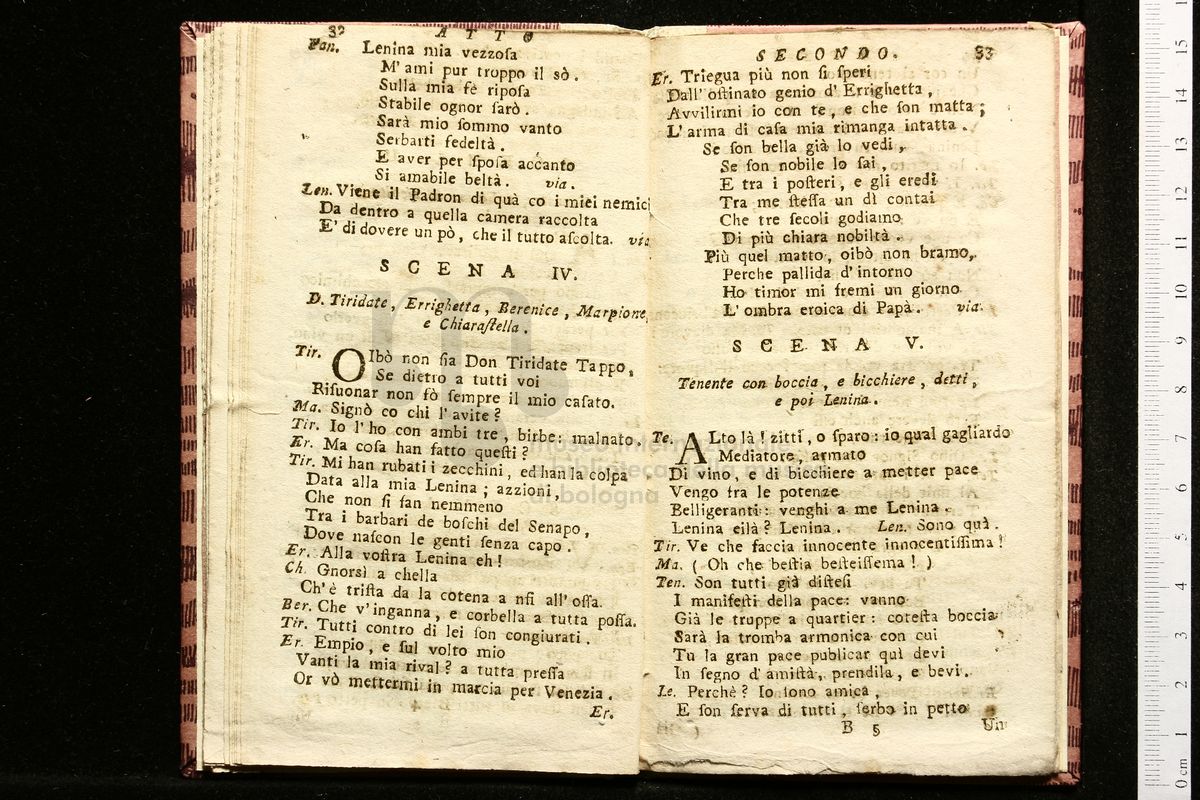 32 ATTO
Pan. Lenina mia vezzoſa
M' ami pur troppo il sò.
Sulla mia fè ripoſa
Stabile ognor ſarò.
Sarà mio ſommo vanto
Serbarti fedeltà.
E aver per ſpoſa accanto
Si amabile beltà. via.
Len. Viene il Padron di quà co i miei nemici
Da dentro a quella camera raccolta
E' di dovere un pò, che il tutto aſcolta. via
SCENA IV.
D. Tiridate, Errighetta, Berenice, Marpione,
e Chiaraſtella.
Tir. OIbò non ſia Don Tiridate Tappo,
Se dietro a tutti voi
Riſuonar non fò ſempre il mio caſato.
Ma. Signò co chi l' avite?
Tir. Io l' ho con ambi tre, birbe: malnato.
Er. Ma coſa han fatto queſti?
Tir. Mi han rubati i zecchini, ed han la colpa
Data alla mia Lenina; azzioni,
Che non ſi fan nemmeno
Tra i barbari de boſchi del Senapo,
Dove naſcon le genti ſenza capo.
Er. Alla voſtra Lenina eh!
Ch. Gnorsì a chella
Ch' è triſta da la cotena a nſi all' oſſa.
Ber. Che v' inganna, e corbella a tutta poſſa.
Tir. Tutti contro di lei ſon congiurati.
Er. Empio, e ſul volto mio
Vanti la mia rival? a tutta preſſa
Or vò mettermi in marcia per Venezia.
Er.
SECONDO. 33
Er. Triegua più non ſi ſperi
Dall' oſtinato genio d' Errighetta,
Avvilirmi io con te, e che ſon matta;
L' arma di caſa mia rimanga intatta.
Se ſon bella già lo vedi,
Se ſon nobile lo ſai,
E tra i poſteri, e gli eredi
Tra me ſteſſa un dì contai
Che tre ſecoli godiamo
Di più chiara nobiltà.
Più quel matto, oibò non bramo,
Perche pallida d' intorno
Ho timor mi fremi un giorno
L' ombra eroica di Papà. via.
SCENA V.
Tenente con boccia, e bicchiere, detti,
e poi Lenina.
Te. ALto là! zitti, o sparo: io qual gagliardo
Mediatore, armato
Di vino, e di bicchiere a metter pace
Vengo fra le potenze
Belligeranti: venghi a me Lenina.
Lenina eilà? Lenina. Len. Sono quì.
Tir. Ve che faccia innocente innocentiſſima!
Ma. (Oh che beſtia beſteiſſema!)
Ten. Son tutti già diſteſi
I manifeſti della pace: vanno
Già le truppe a quartier: coteſta boccia
Sarà la tromba armonica con cui
Tu la gran pace publicar quì devi
In ſegno d' amiſtà, prendila, e bevi.
Le. Perchè? Io ſono amica,
E ſon ſerva di tutti, ſerbo in petto
B 5 Un
museo internazionale
e biblioteca della musica
di bologna